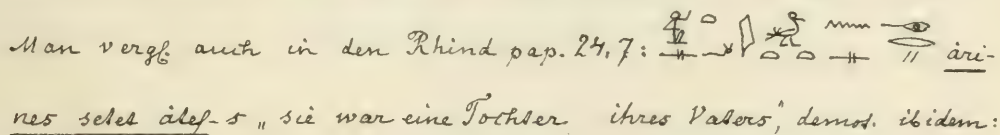 Man vergl auch in den Rhind pap. 24,7: ȧri-
nes setet ȧtef-s „sie war eine Tochter ihres Vaters", demot. ibidem: